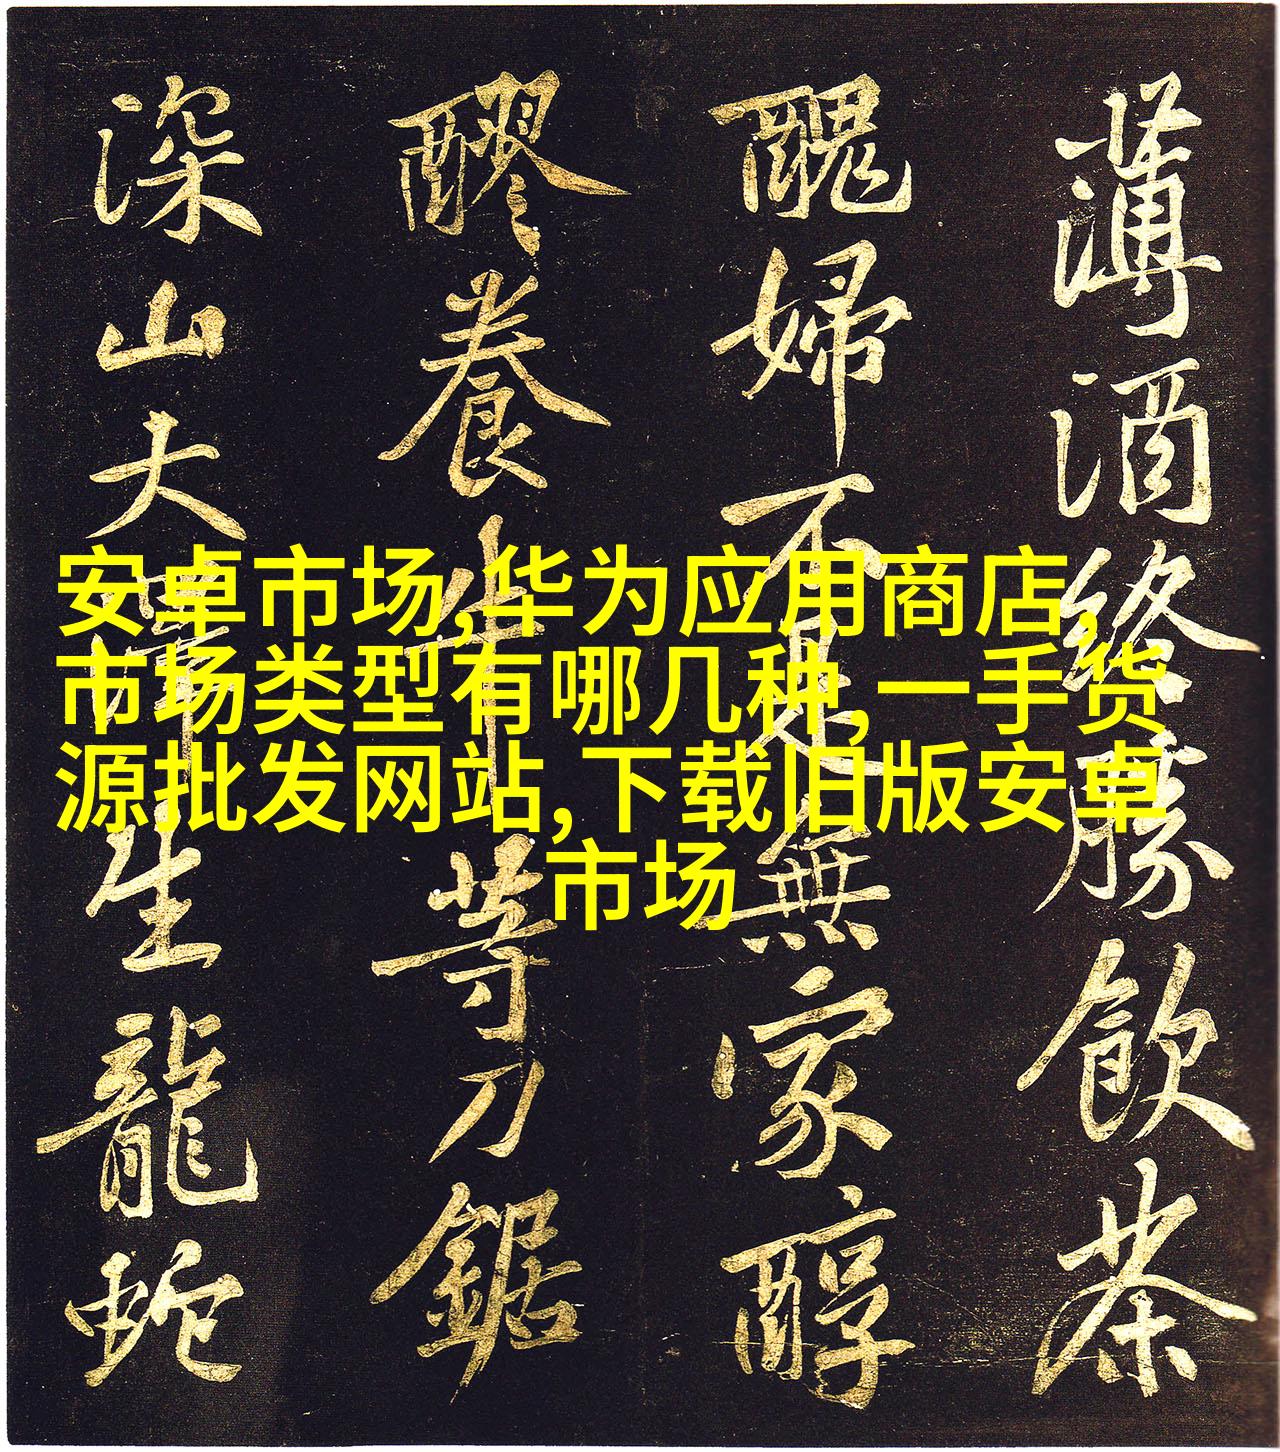 安卓市场,华为应用商店,
市场类型有哪几种,一手货
源批发网站,下载旧版安卓
市场
薄酒終勝飲茶
醜婦不是無家醇
醪養牛等刀鋸
深山大澤生龍蛇